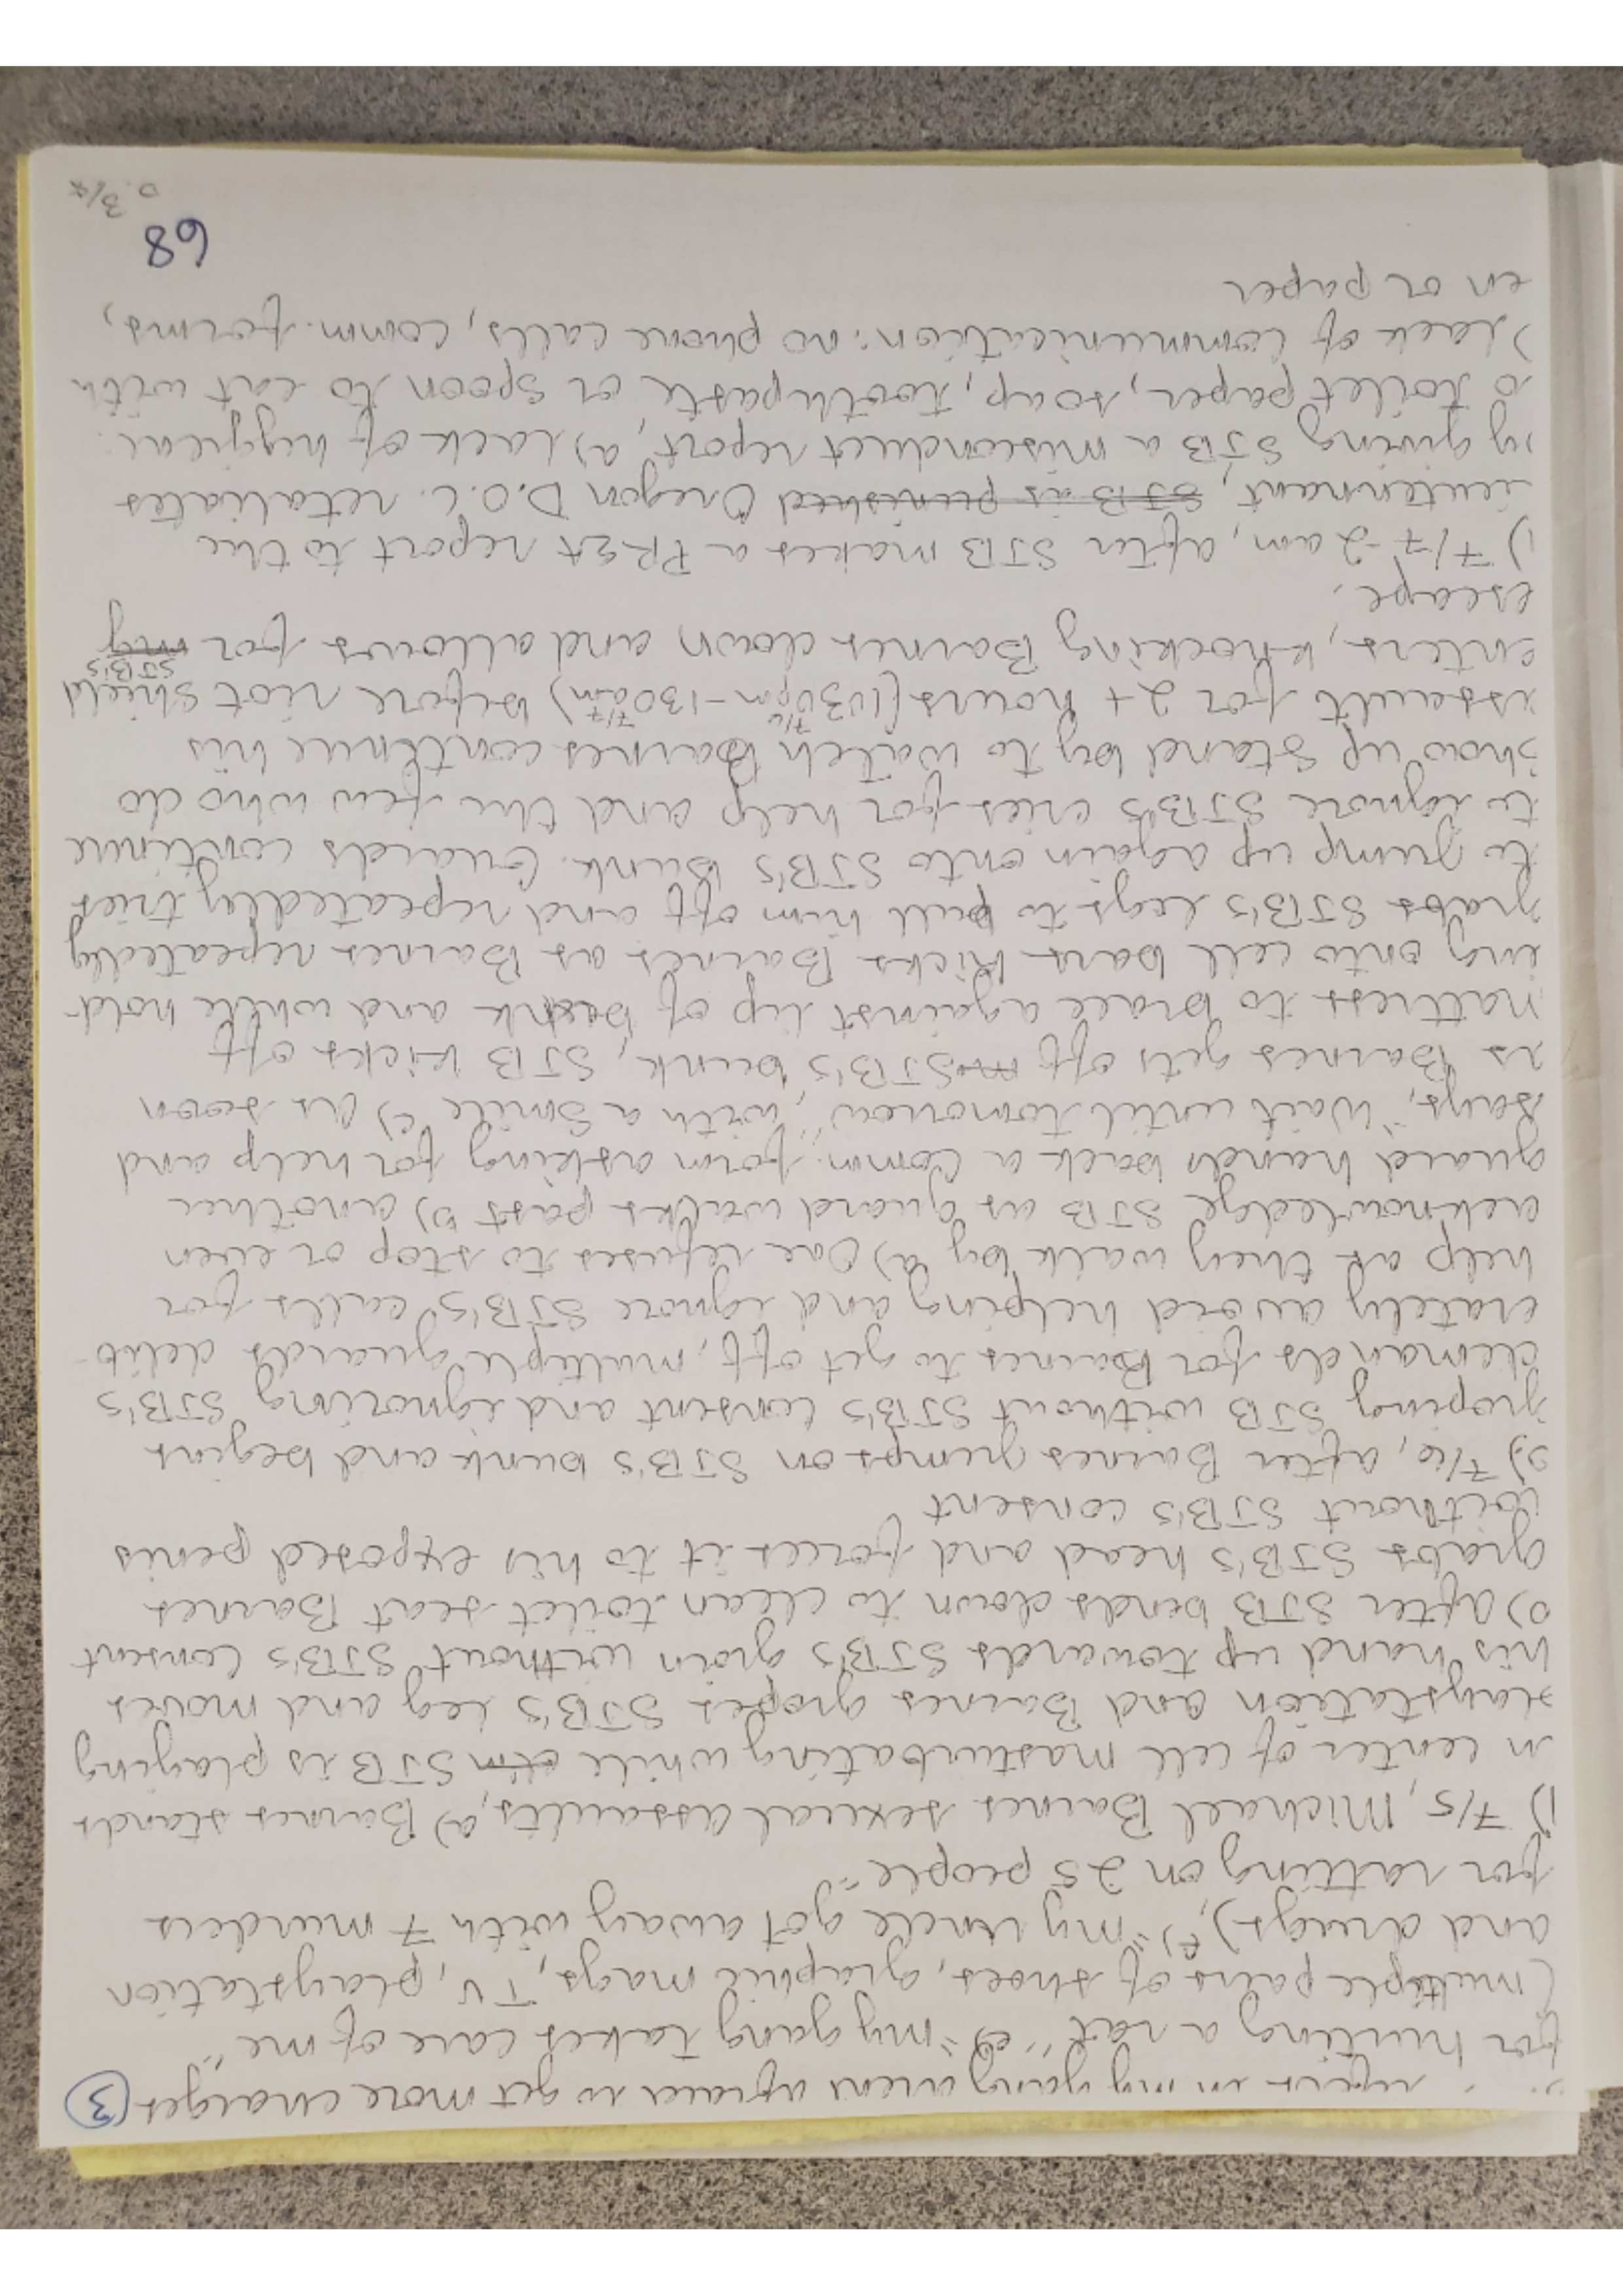 in my gang arent afraid to get more charges (3)
for hurting a rat", e) "my gang takes care of me"
(multiple pairs of shoes, graphic mags, TV, playstation
and drugs), f) "my uncle got away with 7 murders
for ratting on 25 people"
1) 7/5, Michael Barnes sexual assaults, a) Barnes stands
in center of cell masturbating while STB is playing
Playstation and Barnes gropes STB's leg and moves
his hand up towards STB's groin without STB's consent
b) After STB bends down to clean toilet seat Barnes
grabs STB's head and forces it to his exposed penis
without STB's consent
2) 7/6, after Barnes jumps on STB's bunk and begins
groping STB without STB's consent and ignoring STB's
demands for Barnes to get off, multiple guards delib-
erately avoid helping and ignore STB's calls for
help as they walk by a) One refuses to stop or even
acknowledge STB as guard walks past b) another
guard hands back a comm. form asking for help and
says, "wait until tomorrow", with a smile c) As soon
as Barnes gets off STB's bunk, STB kicks off
mattress to brace against lip of bunk and while hold-
ing onto cell bars kicks Barnes as Barnes repeatedly
grabs STB's legs to pull him off and repeatedly tries
to jump up again onto STB's bunk. Guards continue
to ignore STB's cries for help and the few who do
show up stand by to watch Barnes continue his
assault for 2+ hours (1030pm 7/6 - 130am 7/7) before riot shield
enters, knocking Barnes down and allows for my STB's
escape.
1) 7/7 - 2am, after STB makes a PREA report to the
lieutennant, STB is punished Oregon D.O.C. retaliates
by giving STB a misconduct report, a) Lack of hygiene:
no toilet paper, soap, toothpaste or spoon to eat with
) Lack of communication: no phone calls, comm. forms,
en or paper
68
p. 3/7